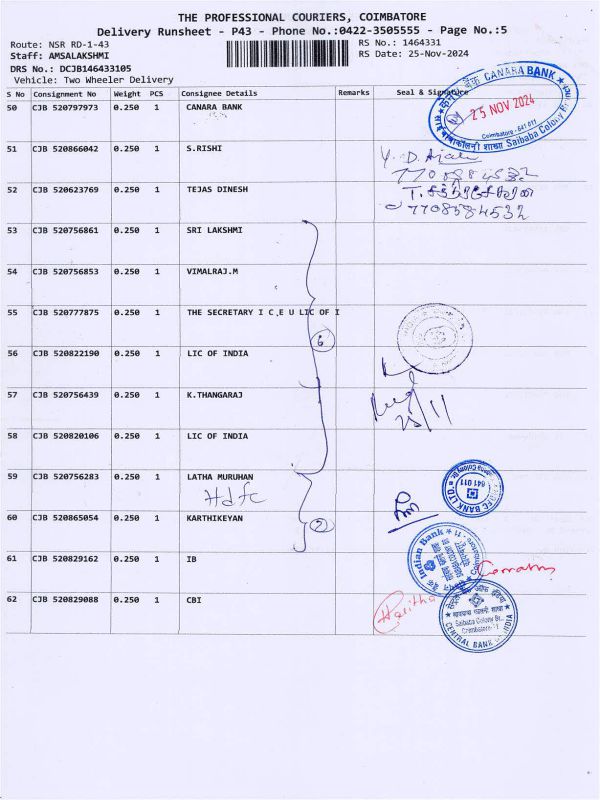 THE PROFESSIONAL COURIERS, COIMBATORE
Delivery Runsheet - P43 - Phone No.:0422-3505555 - Page No.:5
Route: NSR RD-1-43 RS No.: 1464331
Staff: AMSALAKSHMI RS Date: 25-Nov-2024
DRS No.: DCJB146433105
Vehicle: Two Wheeler Delivery
S No Consignment No Weight PCS Consignee Details Remarks Seal & Signature
50 CJB 520797973 0.250 1 CANARA BANK
CANARA BANK
25 NOV 2024
Coimbatore - 641 011
Saibaba Colony
51 CJB 520866042 0.250 1 S.RISHI
52 CJB 520623769 0.250 1 TEJAS DINESH
7708584532
53 CJB 520756861 0.250 1 SRI LAKSHMI
54 CJB 520756853 0.250 1 VIMALRAJ.M
55 CJB 520777875 0.250 1 THE SECRETARY I C.E U LIC OF I
6
56 CJB 520822190 0.250 1 LIC OF INDIA
57 CJB 520756439 0.250 1 K.THANGARAJ
25/11
58 CJB 520820106 0.250 1 LIC OF INDIA
59 CJB 520756283 0.250 1 LATHA MURUHAN
Hdfc
641 011
BANK LTD
60 CJB 520865054 0.250 1 KARTHIKEYAN
2
61 CJB 520829162 0.250 1 IB
Indian Bank
62 CJB 520829088 0.250 1 CBI
Haritha
Saibaba Colony Br.,
Coimbatore-11
CENTRAL BANK OF INDIA